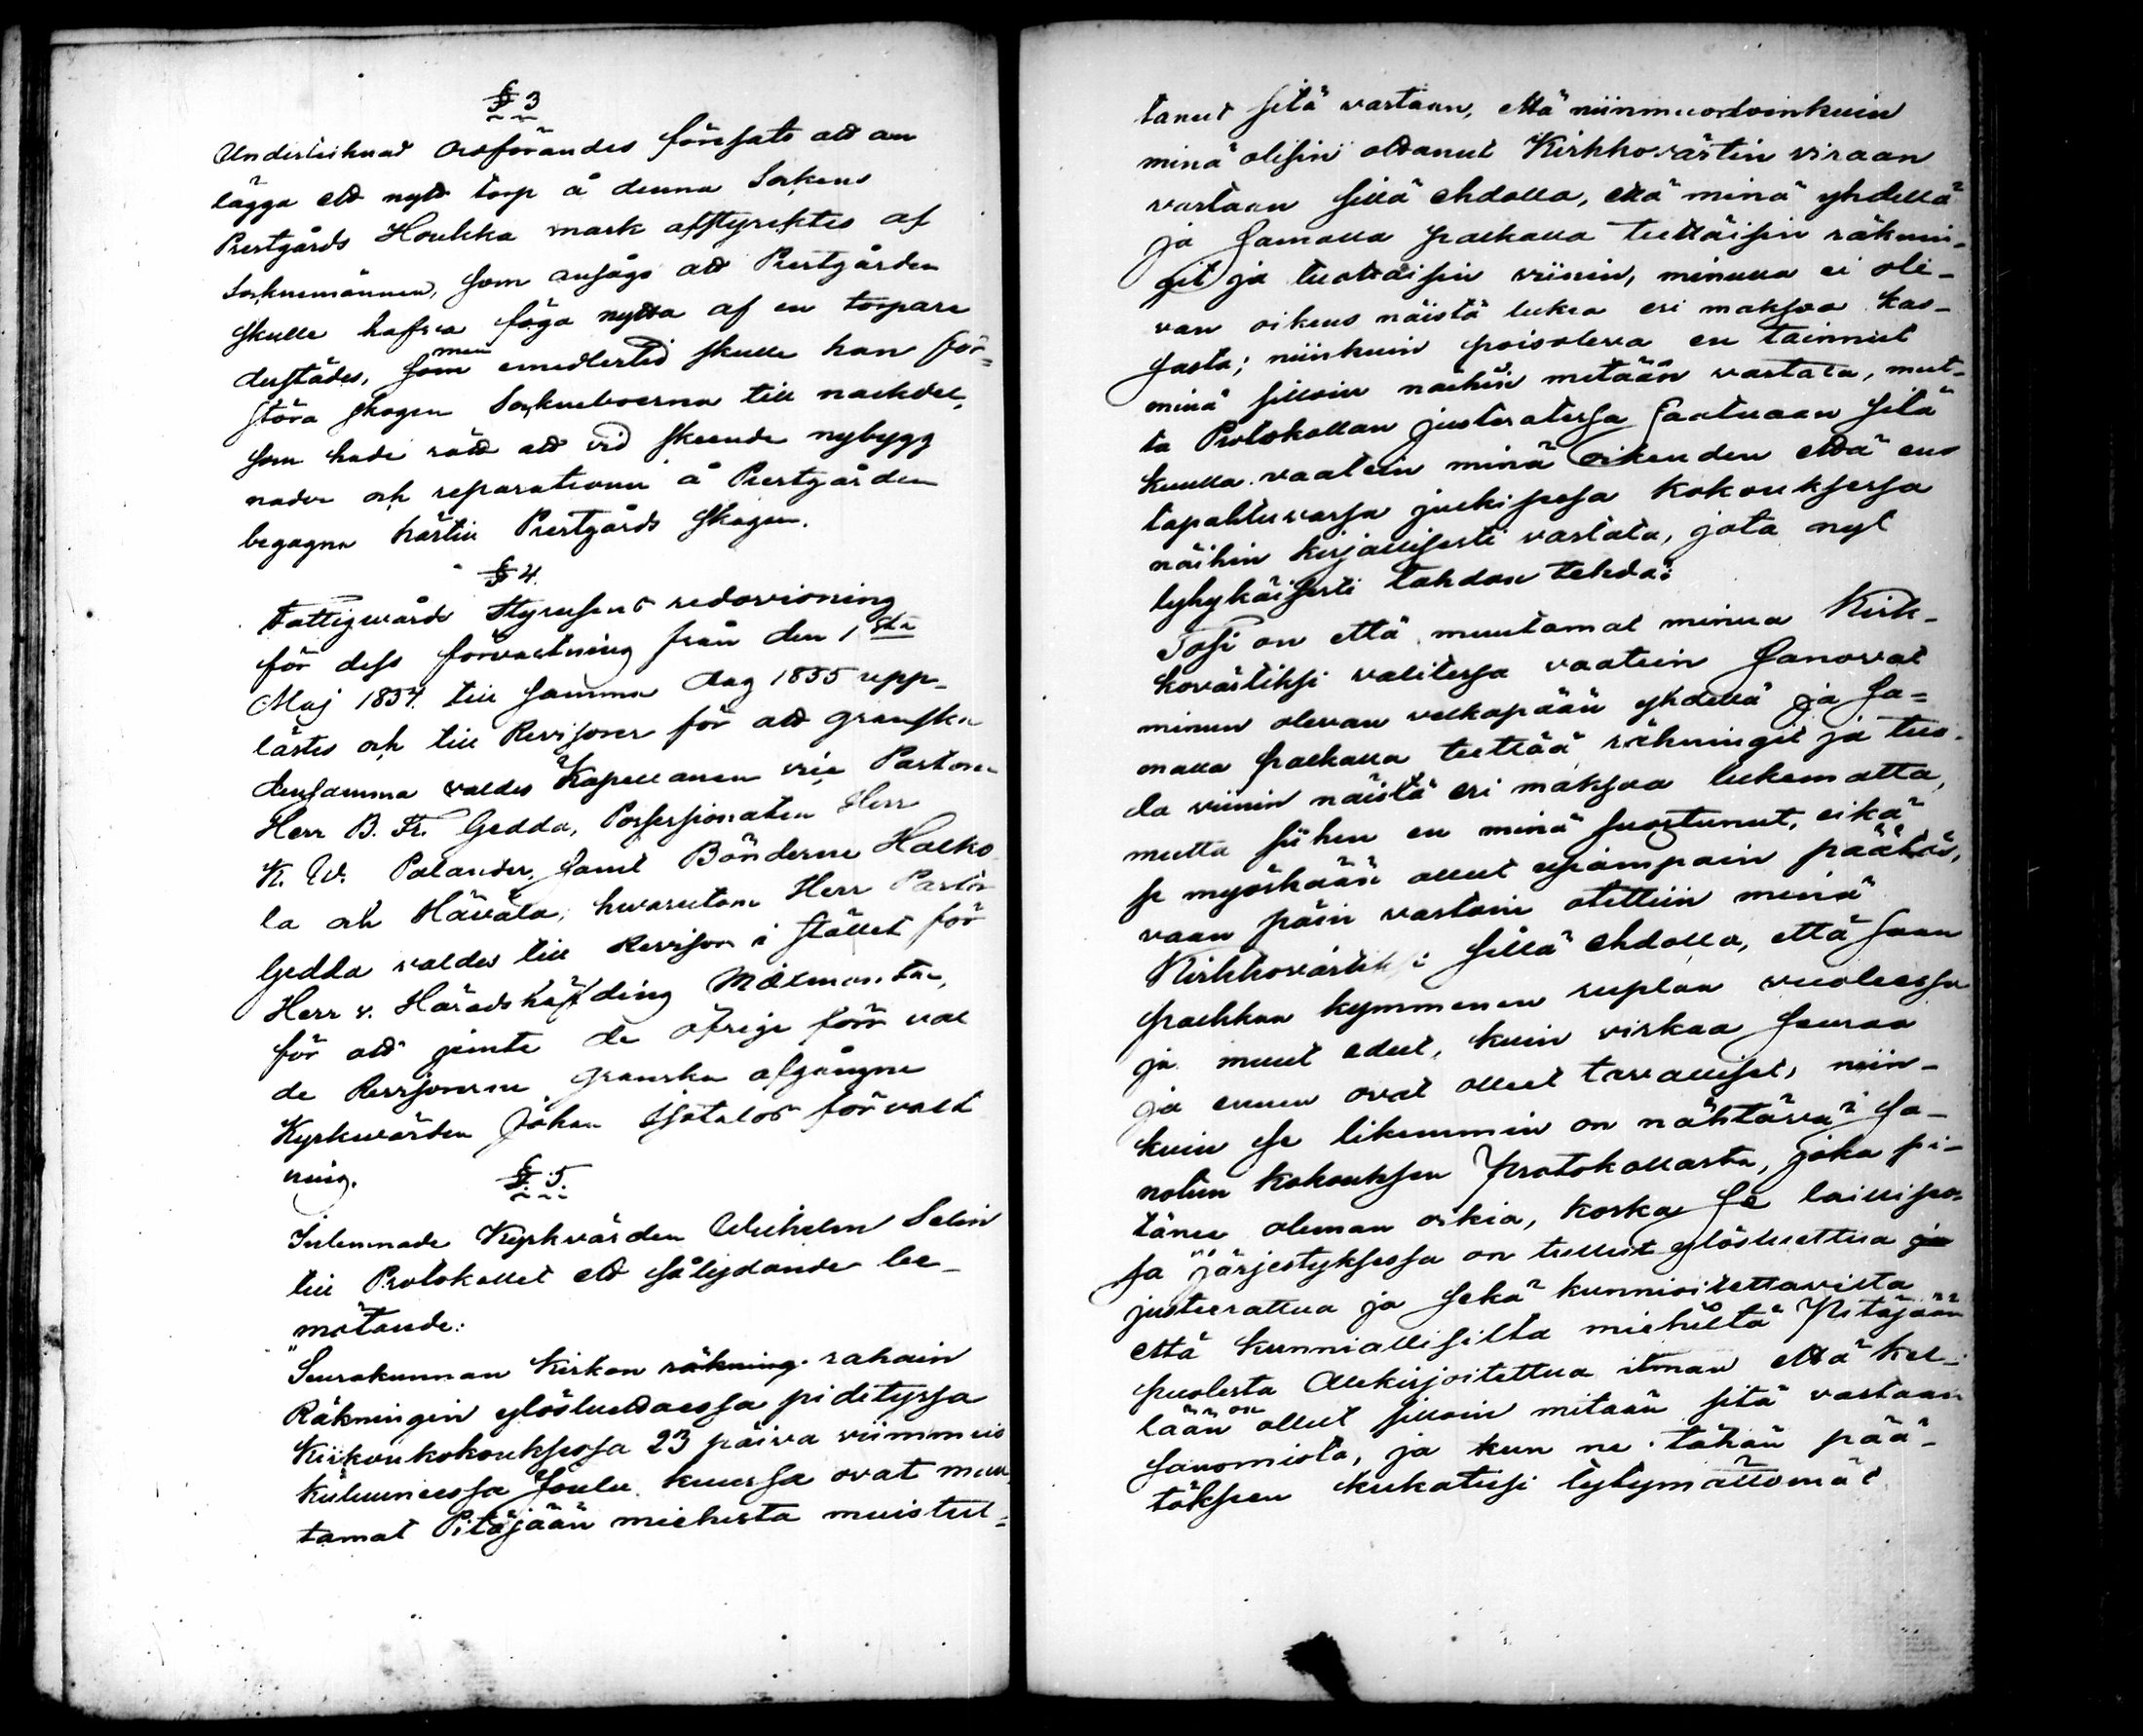 § 3
Undertecknad Ordförandes föresats att an
lägga ett nytt torp å denna Sockens
Prestgårds Houkka mark afstyrktes af
Socknemännen, som ansågo att Prestgården
skulle hafva föga nytta af en torpare
derstädes, som men emedlertid skulle han för=
störa skogen Sockneboerna till nackdel,
som hade rätt att vid skeende nybygg
nader och reparationer å Prestgården
begagna härtill Prestgårds skogen.
§ 4.
Fattigvårds Styrelsens redovisning
för dess förvaltning från den 1sta
Maj 1854 till samma dag 1855 upp-
lästes och till Revisorer för att granska
densamma valdes Kapellanen vice Pastorn
Herr B. Fr. Gedda, Possessionaten Herr
K. W. Palander, samt Bönderne Halko
la och Hävälä; hvarutom Herr Pastor
Gedda valdes till Revisor i stället för
Herr v. Häradshöfding Malmonta,
för att jemte de öfrige förr val
de Revisorerne granska afgångne
Kyrkovärden Johan Isotalos förvalt
ning.
§ 5.
Inlemnade Kyrkvärden Wilhelm Selin
till Protokollet ett sålydande be-
mötande:
"Seurakunnan Kirkon räkning rahain
Räkningin ylösluettaessa pidetyssä
Kirkonkokouksessa 23 päivä viimmeis
kuluneessa Joulu kuussa ovat muu
tamat Pitäjään miehistä muistut=
tanut sitä vastaan, että niinmuodoinkuin
minä olisin ottanut Kirkkovärtin viraan
vastaan sillä ehdolla, että minä yhdellä
ja samalla palkalla teettäisin räknin-
git ja tuottaisin viinin, minulla ei oli-
van oikeus näistä lukea eri maksoa kas-
sasta; niinkuin poisoleva en tainnut
minä silloin näihin mitään vastata, mut-
ta Protokollan justeratessa saatuaan sitä
kuulla vaatein minä oikeuden että ens
tapahtuvassa julkisessa kokouksessa
näihin kirjallisesti vastata, jota nyt
lyhykäisesti tahdon tehdä:
Tosi on että muutamat minua Kirk-
kovärtiksi valitessa vaatein sanovat
minun olevan velkapään yhdellä ja sa=
malla palkalla teettää räkningit ja tuo-
da viinin näistä eri maksoa lukematta,
mutta siihen en minä suostunut, eikä
se myöskään ollut useampain päätös,
vaan päin vastoin otettiin minä
Kirkkovärtiksi sillä ehdolla, että saan
palkkaa kymmenen ruplaa vuoteessa
ja muut edut, kuin virkaa seuraa
ja ennen ovat olleet tavalliset, niin-
kuin se likemmin on nähtävä sa-
notun kokouksen Protokollasta, joka pi-
tänee oleman oikia, koska se laillises-
sa järjestyksessä on tullut ylösluettua ja
justeerattua ja sekä kunnioitettavilta
että kunniallisilta miehiltä Pitäjään
puolesta allekirjoitettua ilman että kel-
lään on ollut silloin mitään sitä vastaan
sanomista, ja kun ne tähän pää-
töksen kukatiesi tytymättömät